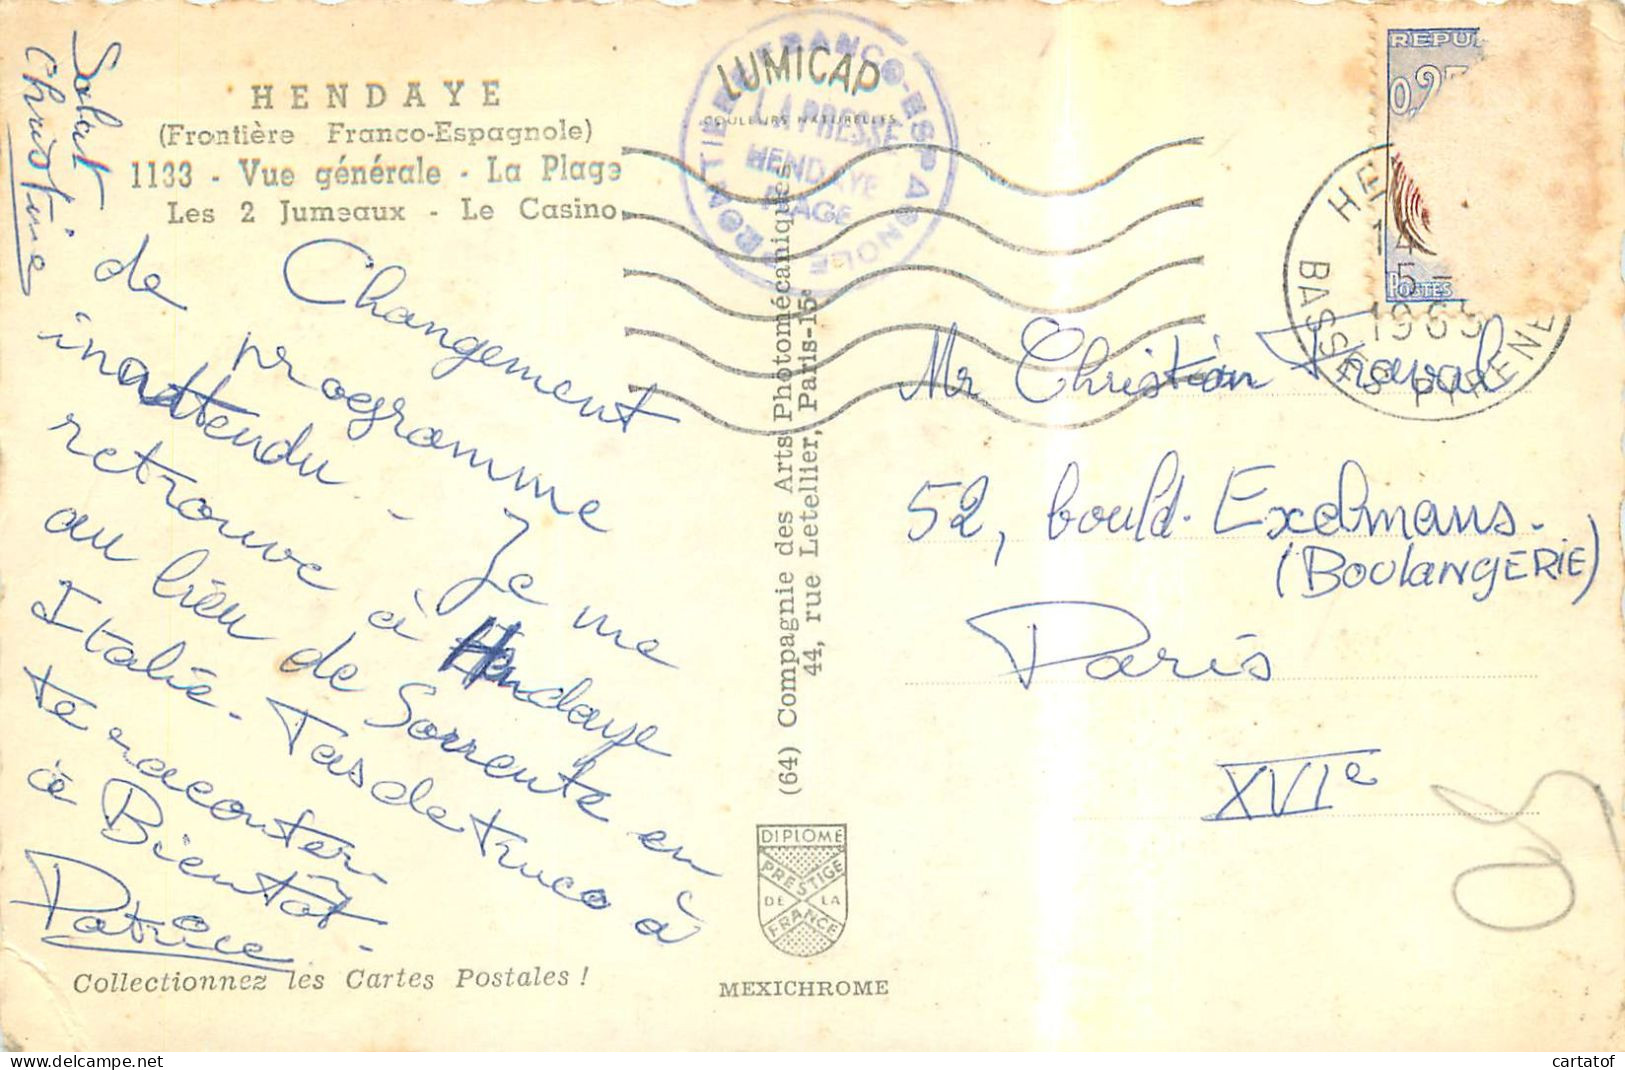 HENDAYE
(Frontière Franco-Espagnole)
1133 - Vue générale - La Plage
Les 2 Jumeaux - Le Casino
Salut
Christine
Changement
de programme
inattendu. - Je me
retrouve à Hendaye
au lieu de Sorrente en
Italie. Tas de trucs à
te raconter
à Bientôt.
Patrice
Collectionnez les Cartes Postales !
LUMICAP
COULEURS NATURELLES
FRONTIERE FRANCO-ESPAGNOLE
LA PRESSE
HENDAYE
PLAGE
(64) Compagnie des Arts Photomécaniques
44, rue Letellier, Paris-15e
DIPLOME
PRESTIGE
DE LA
FRANCE
MEXICHROME
REPU
0,25
POSTES
HE
14
5 -
1965
BASSES PYRENE
Mr Christian
52, bould. Exelmans.
(BOULANGERIE)
Paris
XVIe
cartatof